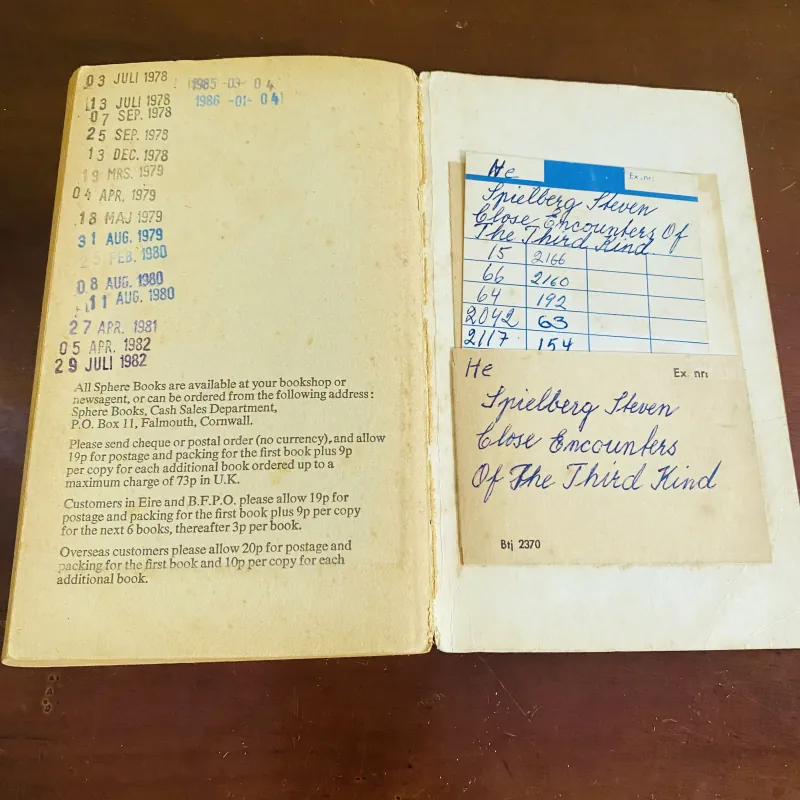 03 JULI 1978
13 JULI 1978
07 SEP. 1978
25 SEP. 1978
13 DEC. 1978
19 MRS. 1979
04 APR. 1979
18 MAJ 1979
31 AUG. 1979
25 FEB. 1980
08 AUG. 1980
11 AUG. 1980
27 APR. 1981
05 APR. 1982
29 JULI 1982
1985 -03- 04
1986 -01- 04
All Sphere Books are available at your bookshop or
newsagent, or can be ordered from the following address:
Sphere Books, Cash Sales Department,
P.O. Box 11, Falmouth, Cornwall.
Please send cheque or postal order (no currency), and allow
19p for postage and packing for the first book plus 9p
per copy for each additional book ordered up to a
maximum charge of 73p in U.K.
Customers in Eire and B.F.P.O. please allow 19p for
postage and packing for the first book plus 9p per copy
for the next 6 books, thereafter 3p per book.
Overseas customers please allow 20p for postage and
packing for the first book and 10p per copy for each
additional book.
He Ex.nr:
Spielberg Steven
Close Encounters Of
The Third Kind
15 2166
66 2160
64 192
2042 63
2117 154
He Ex. nr:
Spielberg Steven
Close Encounters
Of The Third Kind
Btj 2370